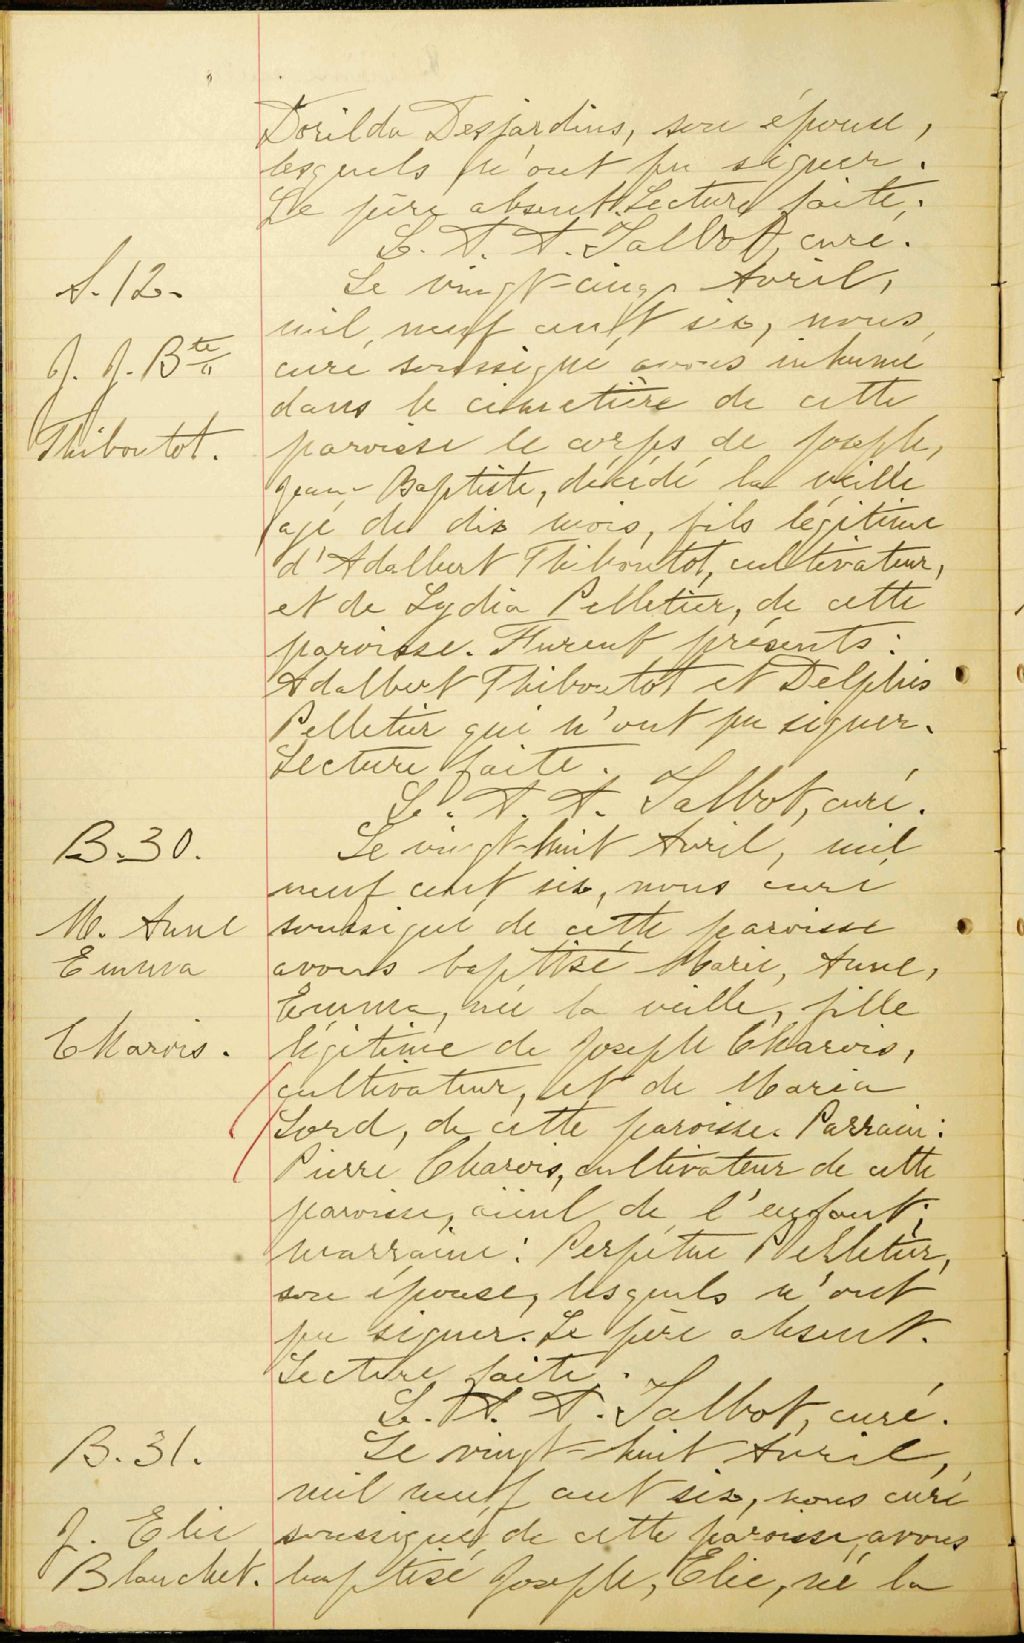 Dorilda Desjardins, son épouse,
lesquels n'ont pu signer.
Le père absent. Lecture faite.
L. A. A. Talbot, curé.
S. 12.
J. J. Bte
Thiboutot.
Le vingt-cinq Avril,
mil neuf cent six, nous,
curé soussigné avons inhumé
dans le cimetière de cette
paroisse le corps de Joseph,
Jean-Baptiste, décédé la veille
agé de dix mois, fils légitime
d'Adalbert Thiboutot, cultivateur,
et de Lydia Pelletier, de cette
paroisse. Furent présents:
Adalbert Thiboutot et Delphis
Pelletier qui n'ont pu signer.
Lecture faite.
L. A. A. Talbot, curé.
B. 30.
M. Anne
Emma
Charois.
Le vingt-huit Avril, mil
neuf cent six, nous curé
soussigné de cette paroisse
avons baptisé Marie, Anne,
Emma, née la veille, fille
légitime de Joseph Charois,
cultivateur, et de Maria
Lord, de cette paroisse. Parrain:
Pierre Charois, cultivateur de cette
paroisse, aïeul de l'enfant;
marraine: Perpétue Pelletier,
son épouse, lesquels n'ont
pu signer. Le père absent.
Lecture faite.
L. A. A. Talbot, curé.
B. 31.
J. Elie
Blanchet.
Le vingt-huit Avril,
mil neuf cent six, nous curé
soussigné, de cette paroisse, avons
baptisé Joseph, Elie, né la